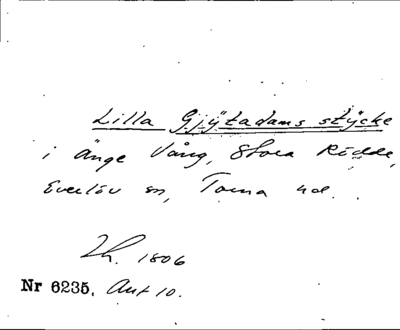 Lilla Gjÿtadams stÿcke
i Änge Vång, Stora Rödde,
Everlöv sn, Torna hd.
Lh. 1806
Nr 6235. Ant 10.